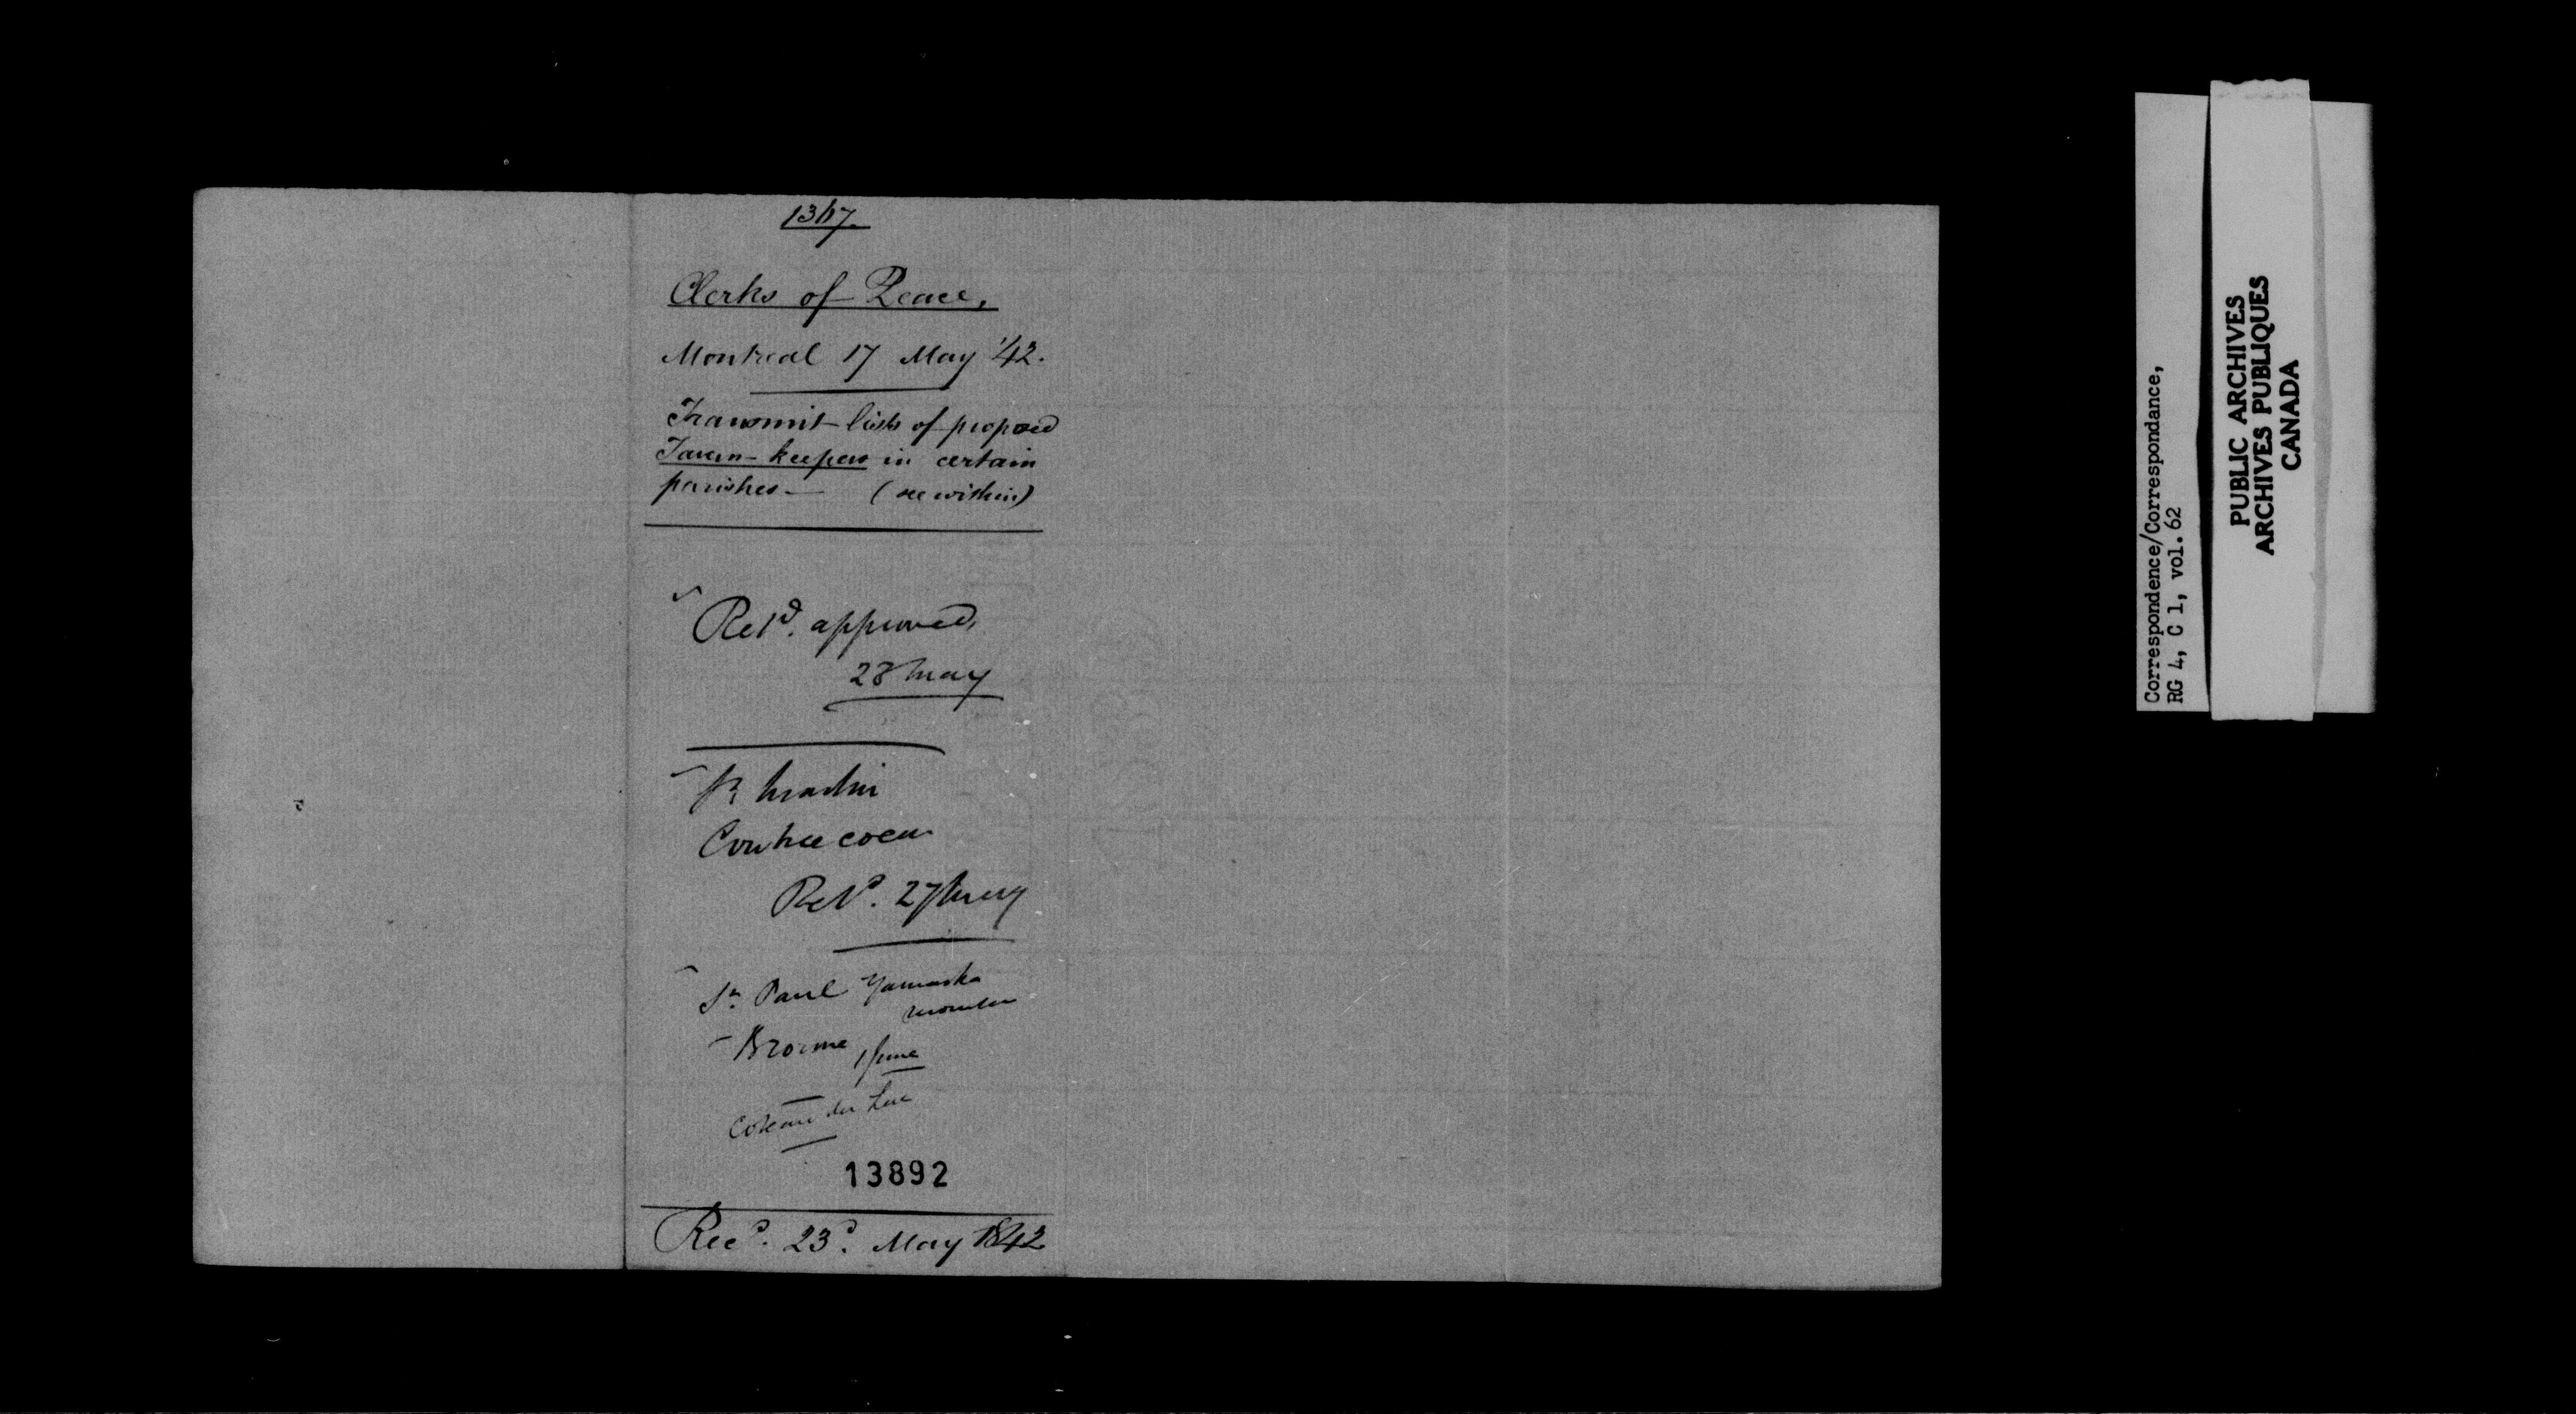 1367.
Clerks of Peace,
Montreal 17 May '42.
Transmit lists of proposed
Tavern-keepers in certain
parishes — (see within)
Retd. approved,
28 May
St Martin
Contrecoeur
Retd. 27 May
St. Paul Yamaska
Mountain
Brome 1 June
Coteau du Lac
13892
Recd. 23d. May 1842
Correspondence/Correspondance,
RG 4, C 1, vol. 62
PUBLIC ARCHIVES
ARCHIVES PUBLIQUES
CANADA